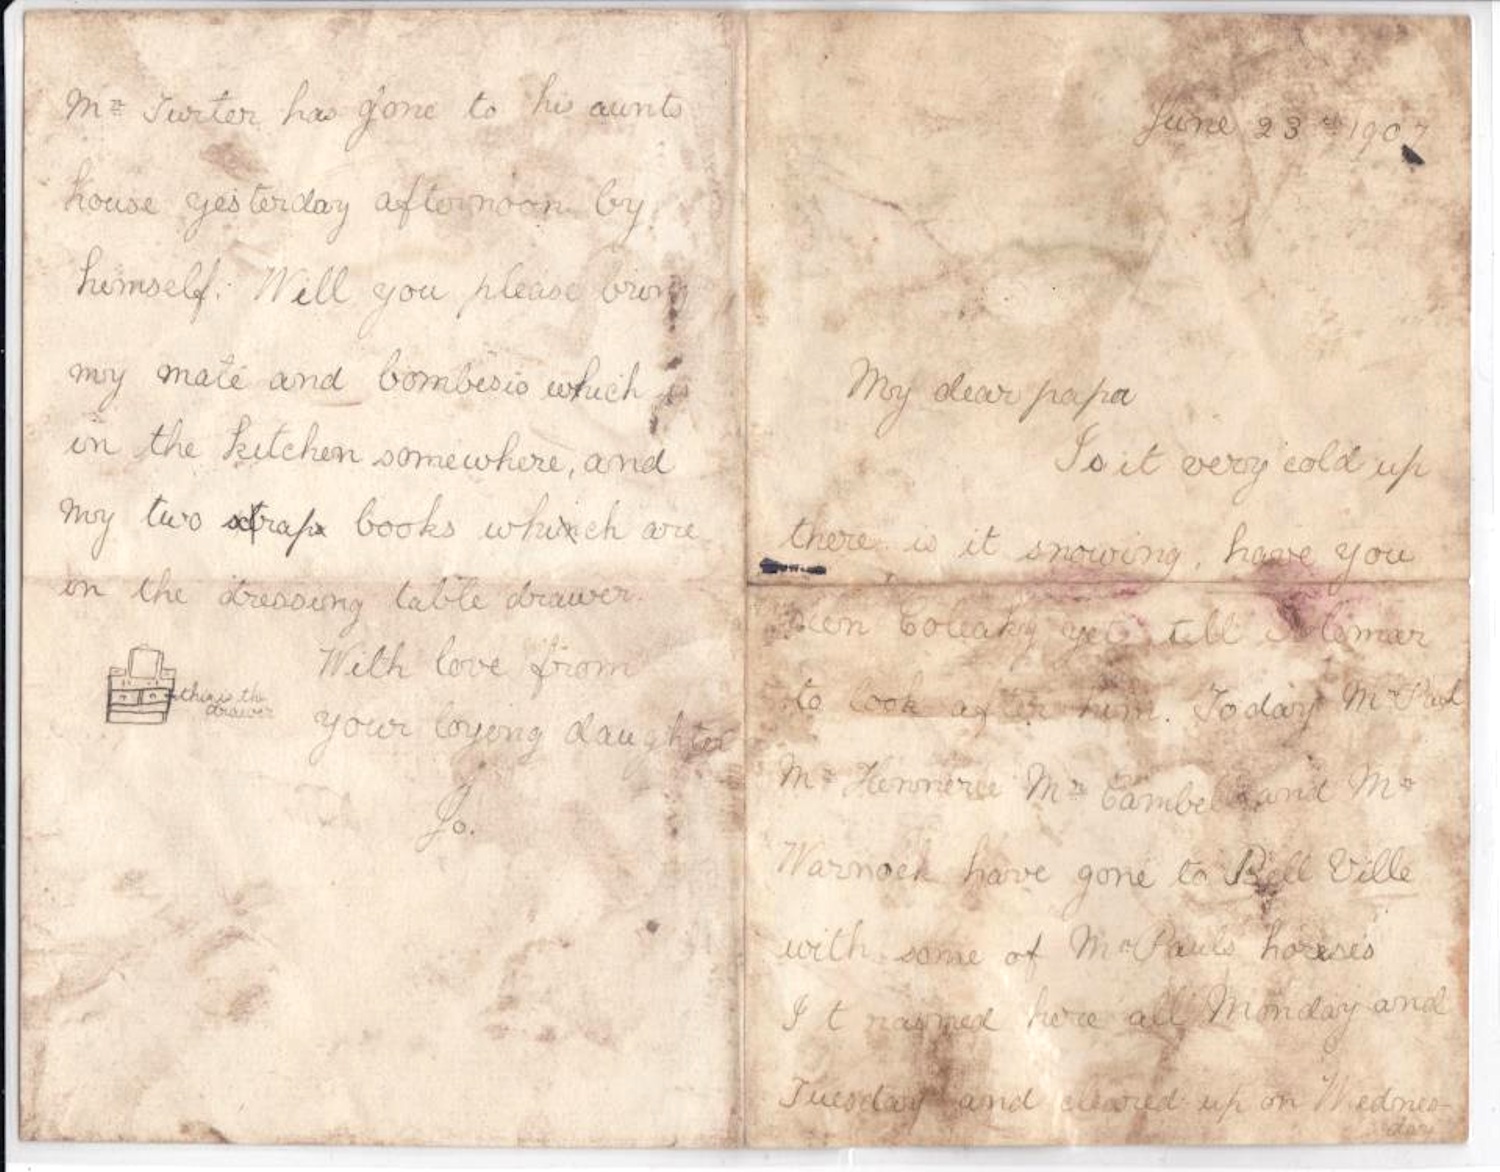 June 23rd 1907
My dear papa
Is it very cold up
there is it snowing, have you
seen Coleaky yet till
to look after him. Today Mr Paul
Mr Hennerie Mr Cambell and Mr
Warnock have gone to Bell Ville
with some of Mr Pauls horses
It rained here all Monday and
Tuesday and cleared up on Wednes-
day
Mr Turter has gone to his aunts
house yesterday afternoon by
himself. Will you please bring
my maté and which is
in the kitchen somewhere, and
my two strap books which are
in the dressing table drawer.
this is the
drawer
With love from
your loving daughter
Jo.